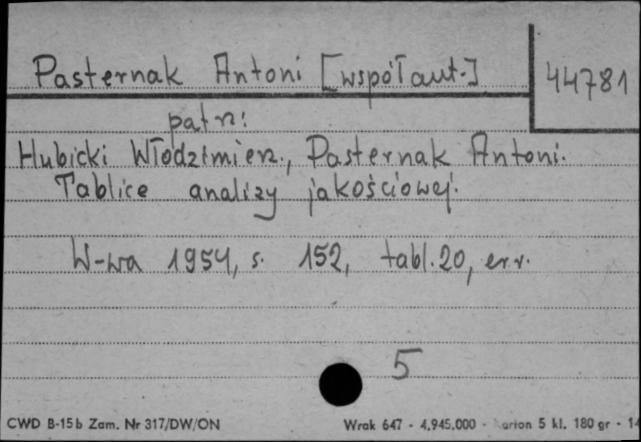 Pasternak Antoni [współaut.]
44781
patrz:
Hubicki Włodzimierz., Pasternak Antoni.
Tablice analizy jakościowej.
W-wa 1954, s. 152, tabl. 20, err.
5
CWD B-15 b Zam. Nr 317/DW/ON
Wrak 647 - 4.945.000 - 5 kl. 180 gr -